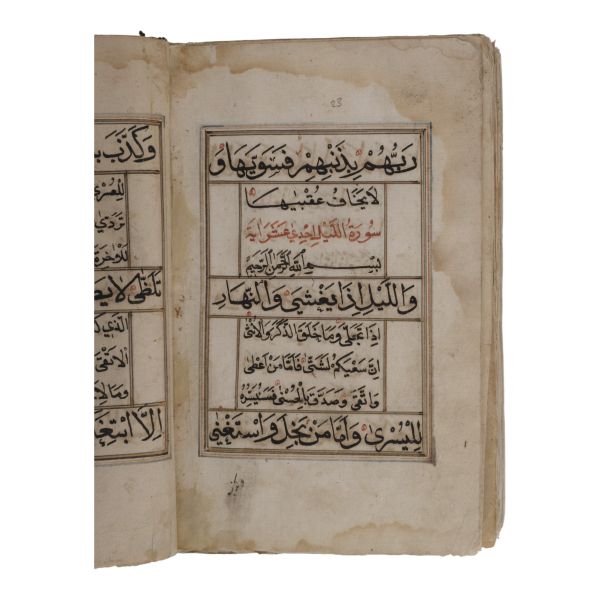 23
رَبُّهُمْ بِذَنْبِهِمْ فَسَوّٰيهَا وَ
لَا يَخَافُ عُقْبٰيهَا
سورة الليل احدى عشر اية
بسم الله الرحمن الرحيم
وَاللَّيْلِ اِذَا يَغْشٰى وَالنَّهَارِ
اِذَا تَجَلّٰى وَمَا خَلَقَ الذَّكَرَ وَالْاُنْثٰى
اِنَّ سَعْيَكُمْ لَشَتّٰى فَاَمَّا مَنْ اَعْطٰى
وَاتَّقٰى وَصَدَّقَ بِالْحُسْنٰى فَسَنُيَسِّرُهُ
لِلْيُسْرٰى وَاَمَّا مَنْ بَخِلَ وَاسْتَغْنٰى
وَكَذَّبَ
للعسرى
تردى
تلظى لا
الذي
الاتقى
الا